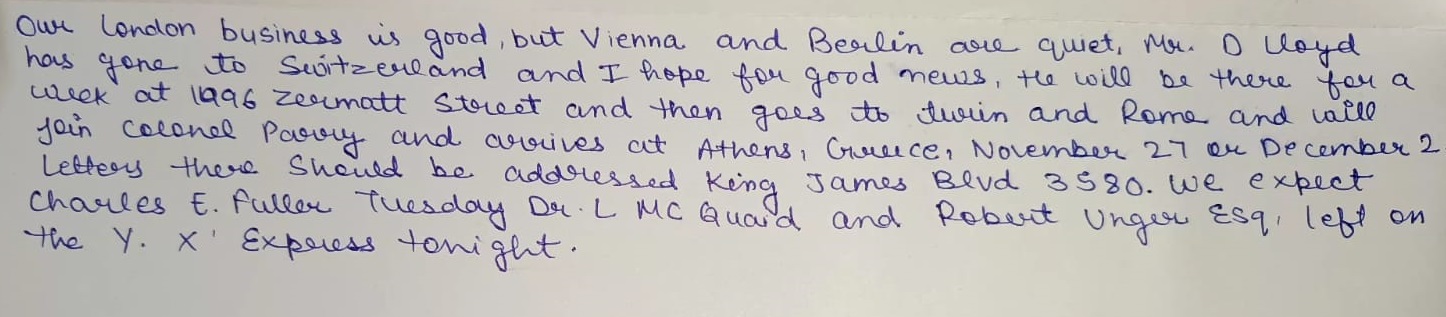 Our London business is good, but Vienna and Berlin are quiet, Mr. D Lloyd
has gone to Switzerland and I hope for good news, He will be there for a
week at 1996 Zermatt Street and then goes to turin and Rome and will
join Colonel Parry and arrives at Athens, Greece, November 27 or December 2
Letters there Should be addressed King James Blvd 3580. We expect
Charles E. Fuller Tuesday Dr. L MC Quaid and Robert Unger ESq, left on
the Y. X' Express tonight.